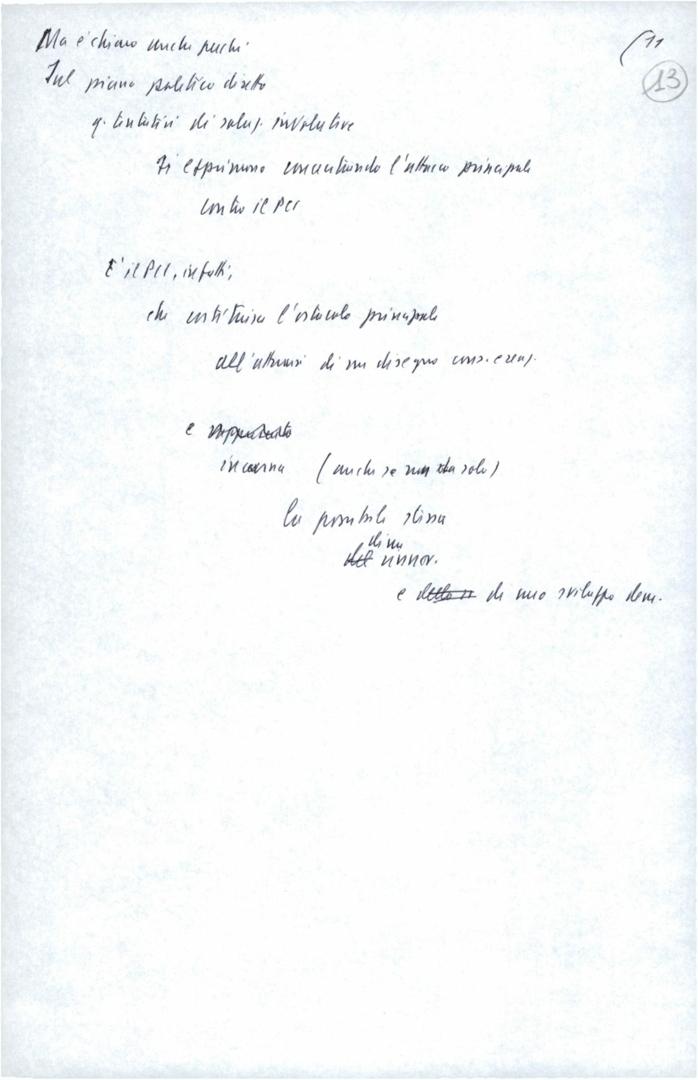 Ma è chiaro anche perché (11
Sul piano politico diretto 13
q. tentativi di soluz. involutive
si esprimono concentrando l'attacco principale
contro il PCI
È il PCI, infatti,
che costituisce l'ostacolo principale
all'attuarsi di un disegno
e rappresenta
incarna (anche se non da solo)
la possibilità stessa
di un
del rinnov.
e di uno sviluppo dem.